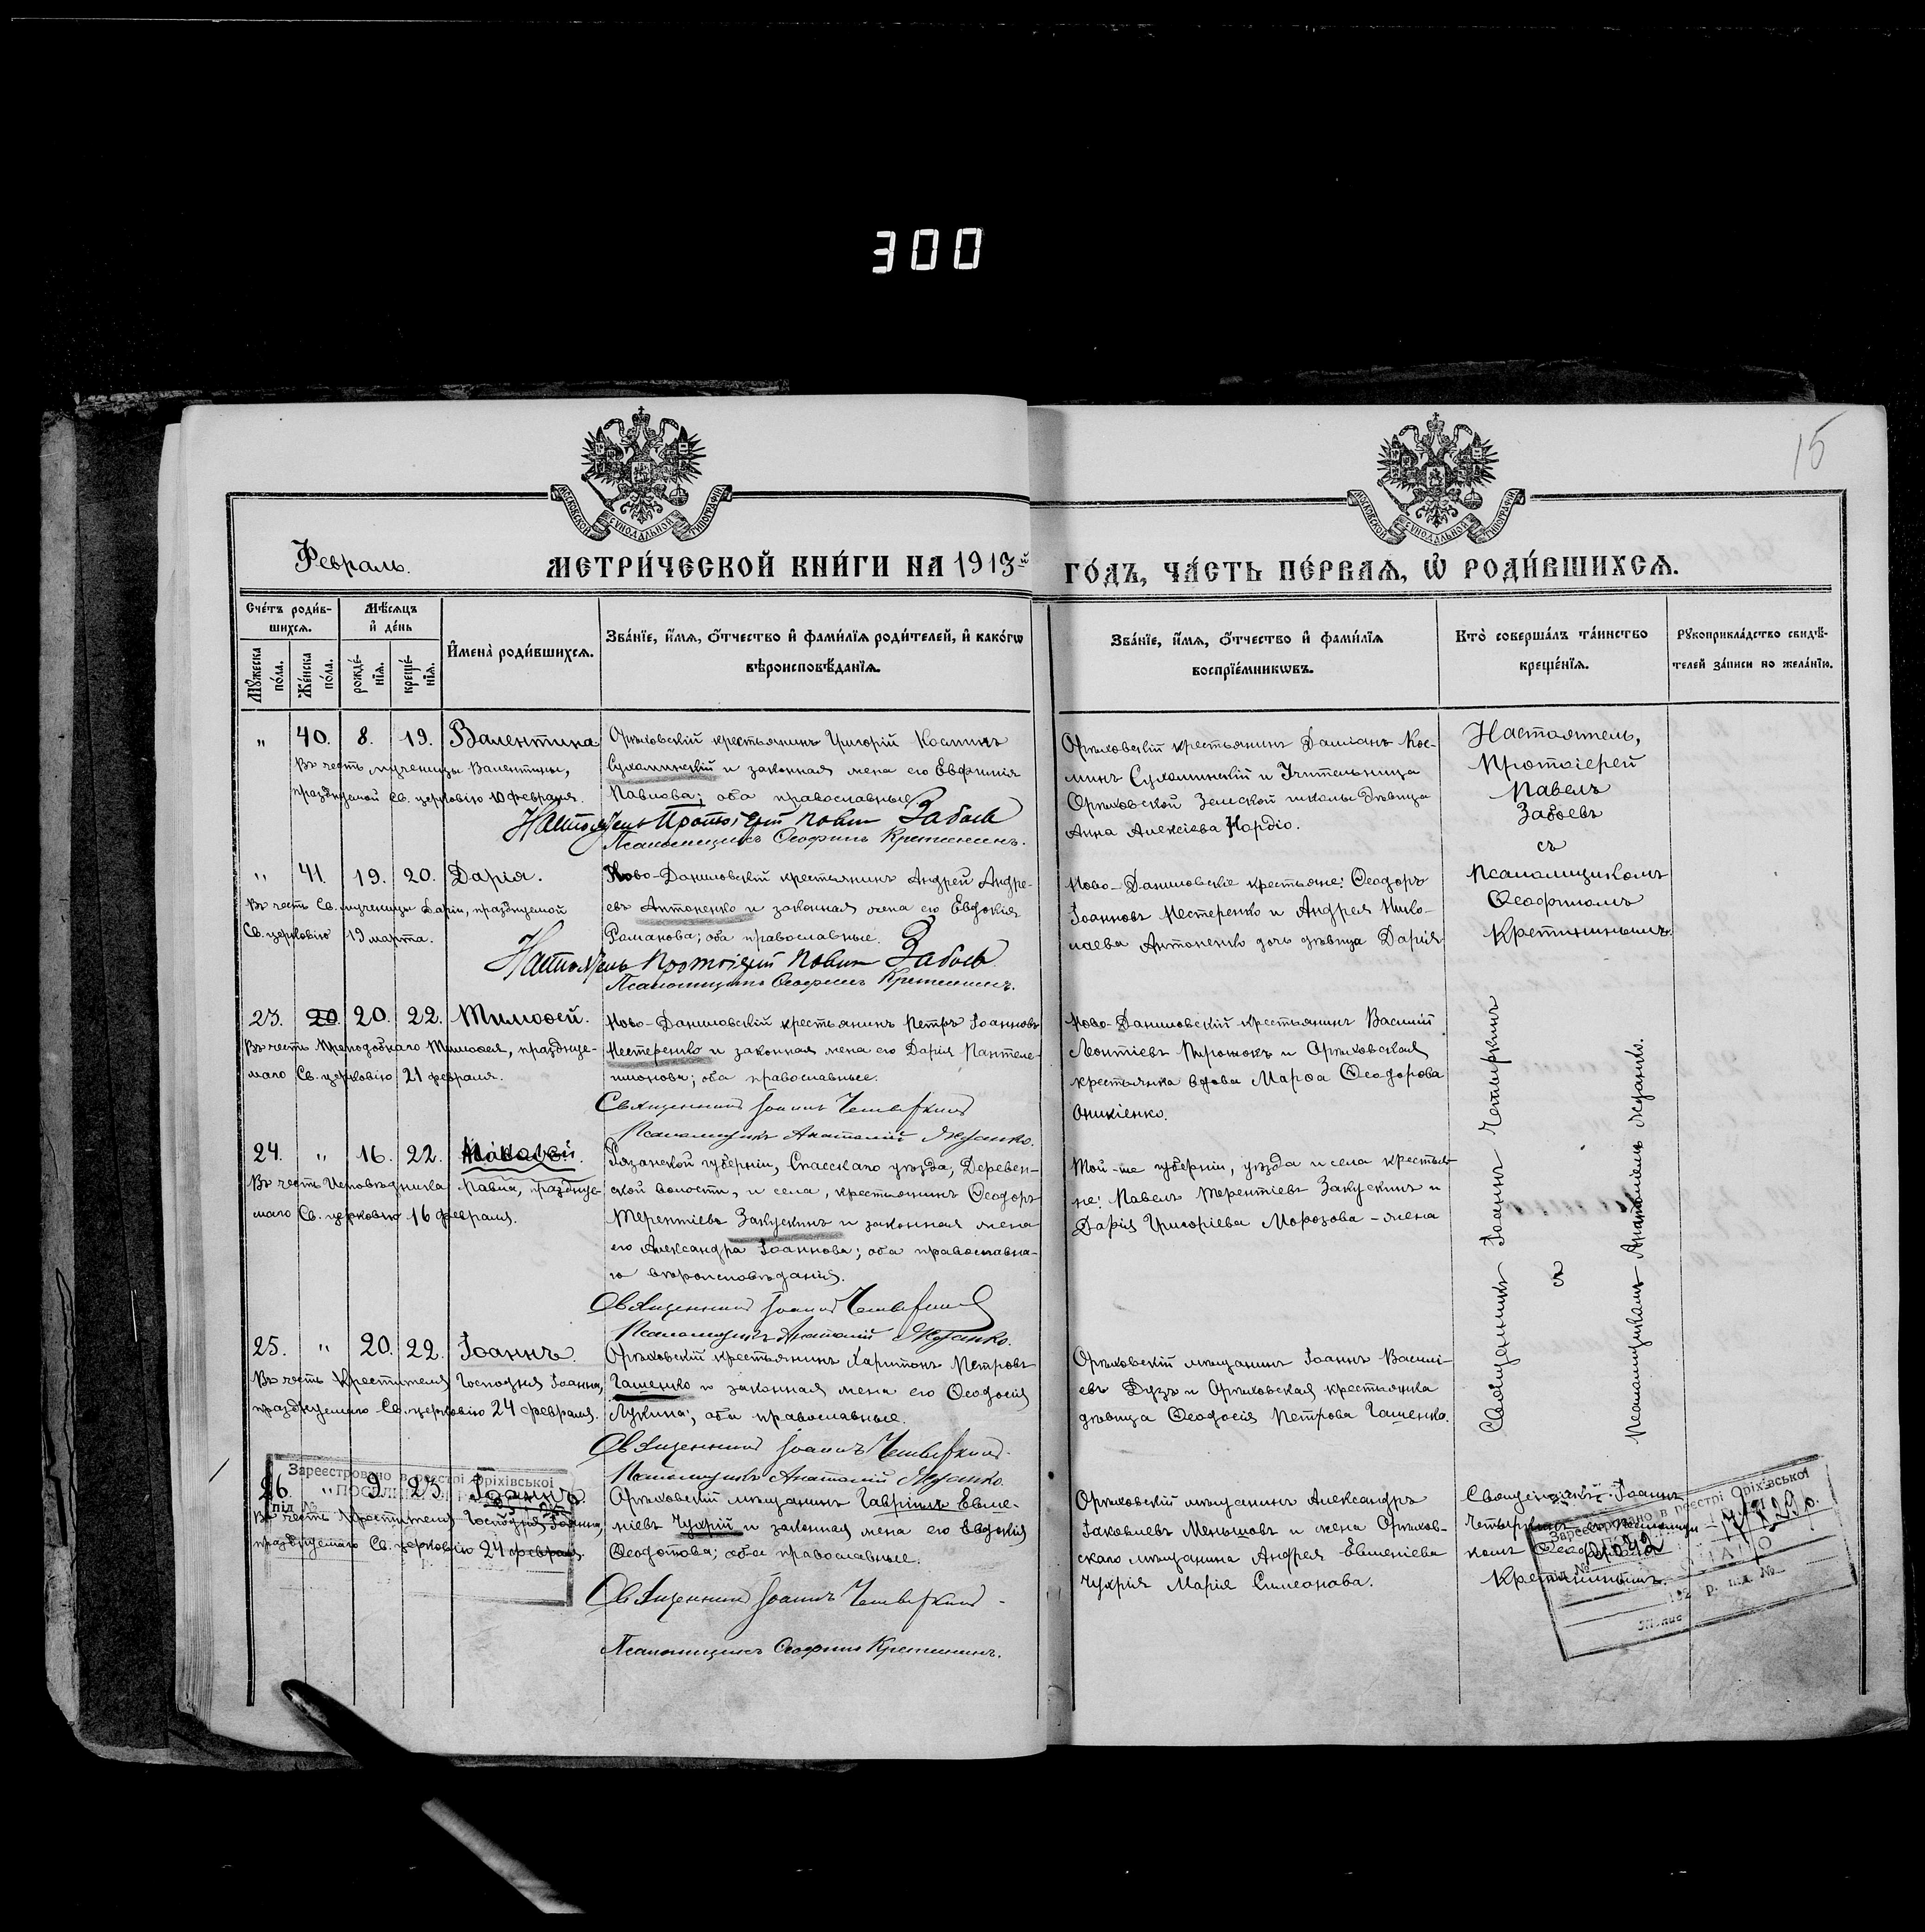 300
15
МОСКОВСКОЙ СУНОДАЛЬНОЙ ТИПОГРАФИИ
МОСКОВСКОЙ СУНОДАЛЬНОЙ ТИПОГРАФИИ
Февраль. МЕТРИ́ЧЕСКОЙ КНИ́ГИ НА 1913й ГО́ДЪ, ЧА́СТЬ ПЕ́РВАѦ, Ѡ҆ РОДИ́ВШИХСѦ.
Сче́тъ роди́в-
шихсѧ.
Мꙋ́жеска по́ла.
Же́нска по́ла.
Мѣ́сѧцъ
и҆ де́нь
рожде́-
нїѧ.
креще́-
нїѧ.
И҆мена̀ роди́вшихсѧ.
Зва́нїе, и҆́мѧ, ѻ҆́тчество и҆ фами́лїѧ роди́телей, и҆ како́гѡ
вѣроисповѣ́данїѧ.
Зва́нїе, и҆́мѧ, ѻ҆́тчество и҆ фами́лїѧ
воспрїе́мникѡвъ.
Кто̀ соверша́лъ та́инство
креще́нїѧ.
Рꙋкоприкла́дство свидѣ́-
телей за́писи по жела́нїю.
„ 40. 8. 19. Валентина
Въ честь мученицы Валентины,
празднуемой Св. церковію 10 февраля.
Орѣховскій крестьянинъ Григорій Косминъ
Сухоминскій и законная жена его Евфимія
Павлова; оба православные.
Настоятель Протоіерей Павелъ Забоевъ
Псаломщикъ Ѳеофилъ Кретининъ.
Орѣховскій крестьянинъ Даміанъ Кос-
минъ Сухоминскій и Учительница
Орѣховской Земской школы дѣвица
Анна Алексіева Нордіо.
Настоятель,
Протоіерей
Павелъ
Забоевъ
съ
Псаломщикомъ
Ѳеофиломъ
Кретининымъ.
„ 41. 19. 20. Дарія.
Въ честь Св. мученицы Даріи, празднуемой
Св. церковію 19 марта.
Ново-Даниловскій крестьянинъ Андрей Андре-
евъ Антоненко и законная жена его Евдокія
Романова; оба православные.
Настоятель Протоіерей Павелъ Забоевъ
Псаломщикъ Ѳеофилъ Кретининъ.
Ново-Даниловскіе крестьяне: Ѳеодоръ
Іоанновъ Нестеренко и Андрея Нико-
лаева Антоненко дочь дѣвица Дарія
23. 20. 20. 22. Тимоѳей.
Въ честь Преподобнаго Тимоѳея, празднуе-
маго Св. церковію 21 февраля.
Ново-Даниловскій крестьянинъ Петръ Іоанновъ
Нестеренко и законная жена его Дарія Пантеле-
имонова; оба православные.
Священникъ Іоаннъ Четыркинъ
Псаломщикъ Анатолій Жеданко.
Ново-Даниловскій крестьянинъ Василій
Леонтіевъ Пирожокъ и Орѣховская
крестьянка вдова Марѳа Ѳеодорова
Оникіенко.
Священникъ Іоаннъ Четыркинъ
съ
Псаломщикомъ Анатоліемъ Жеданко.
24. „ 16. 22.
Въ честь Исповѣдника Павла, празднуе-
маго Св. церковію 16 февраля.
Рязанской губерніи, Спасскаго уѣзда, Деревен-
ской волости, и села, крестьянинъ Ѳеодоръ
Терентіевъ Закускинъ и законная жена
его Александра Іоаннова; оба православна-
го вѣроисповѣданія.
Священникъ Іоаннъ Четыркинъ
Псаломщикъ Анатолій Жеданко.
Той-же губерніи, уѣзда и села крестья-
не: Павелъ Терентіевъ Закускинъ и
Дарія Григоріева Морозова – жена
25. „ 20. 22. Іоаннъ.
Въ честь Крестителя Господня Іоанна,
празднуемаго Св. церковію 24 февраля.
Орѣховскій крестьянинъ Харитонъ Петровъ
Гашенко и законная жена его Ѳеодосія
Лукина; оба православные.
Священникъ Іоаннъ Четыркинъ.
Псаломщикъ Анатолій Жеданко.
Орѣховскій мѣщанинъ Іоаннъ Васили-
евъ Дузь и Орѣховская крестьянка
дѣвица Ѳеодосія Петрова Гашенко.
26. „ 9. 23. Іоаннъ.
Въ честь Крестителя Господня Іоанна,
празднуемаго Св. церковію 24 февраля.
Зареєстровано в реєстрі Оріхівської
під №
Орѣховскій мѣщанинъ Гавріилъ Евме-
ніевъ Чухрій и законная жена его Евдокія
Ѳеодотова; оба православные.
Священникъ Іоаннъ Четыркинъ.
Псаломщикъ Ѳеофилъ Кретининъ.
Орѣховскій мѣщанинъ Александръ
Іаковлевъ Меньшовъ и жена Орѣхов-
скаго мѣщанина Андрея Евменіева
Чухрія Марія Симеонова.
Священникъ Іоаннъ
Четыркинъ съ псаломщи-
комъ Ѳеофиломъ
Кретининымъ.
Зареєстровано в реєстрі Оріхівської